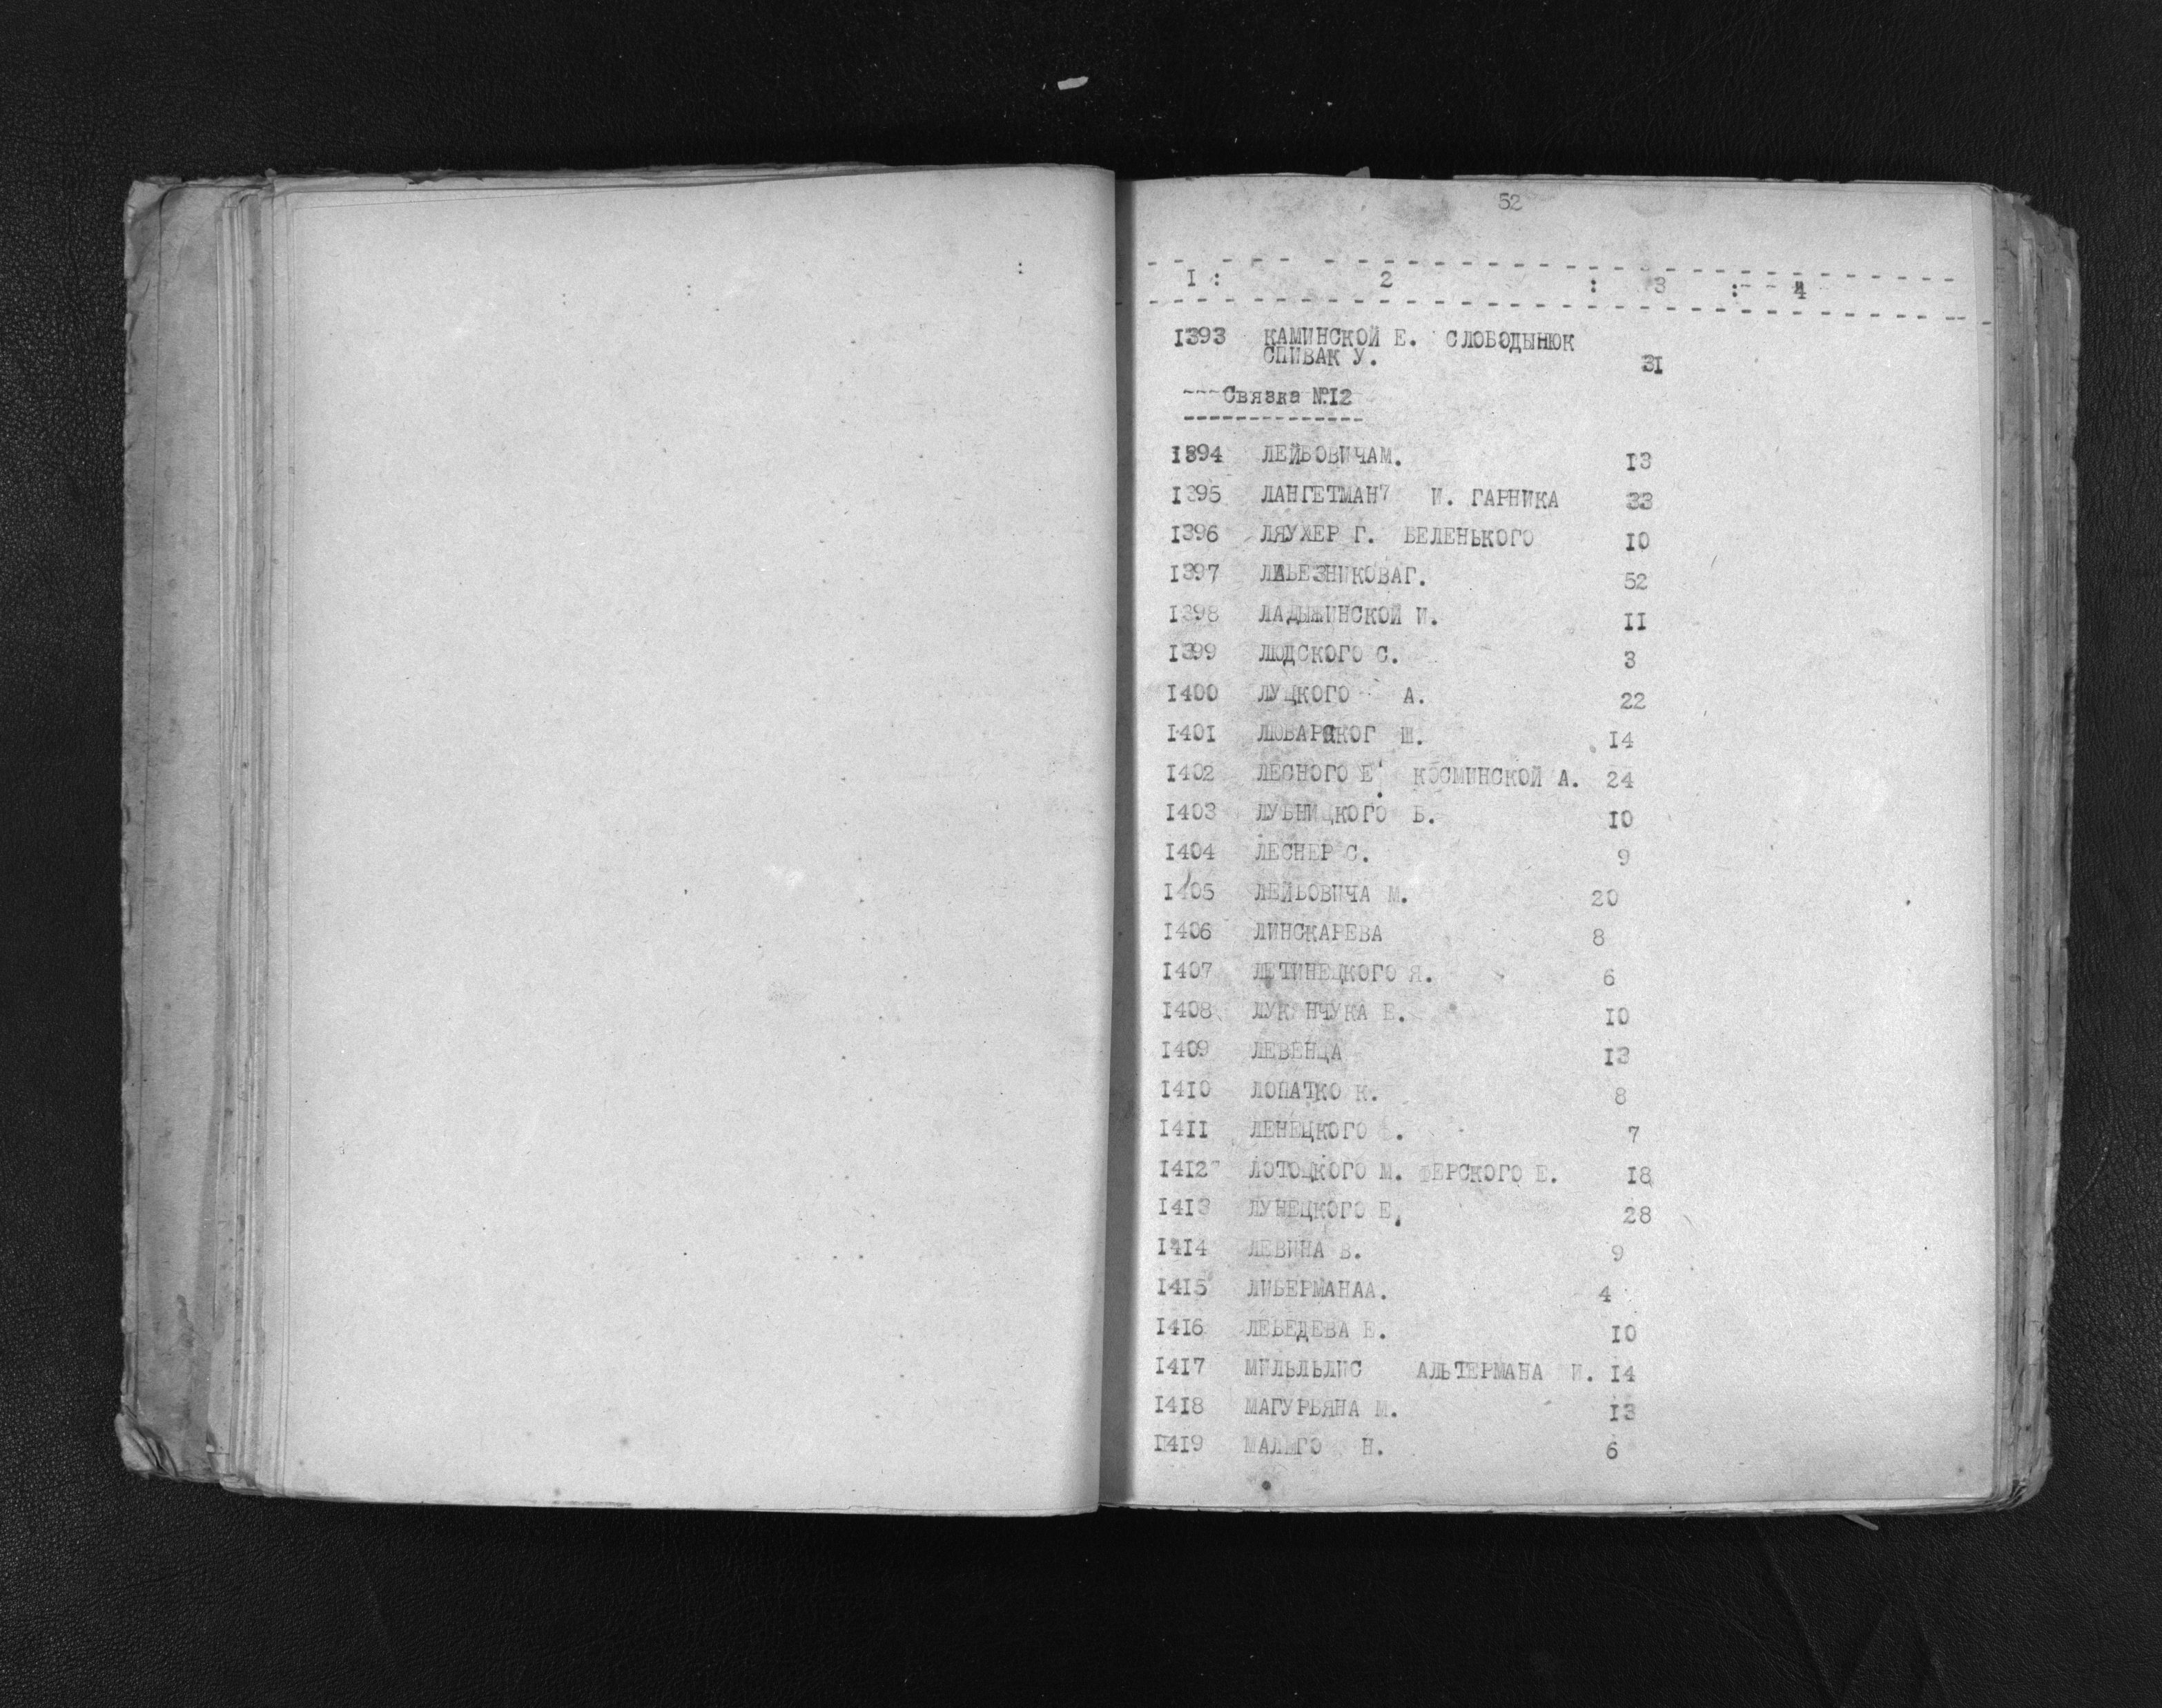 52
I : 2 : 3 : 4
I393 КАМИНСКОЙ Е. СЛОБОДЫНЮК
СПИВАК У. 31
Связка №I2
I394 ЛЕЙБОВИЧАМ. I3
I395 ЛАНГЕТМАН И. ГАРНИКА 33
I396 ЛЯУХЕР Г. БЕЛЕНЬКОГО I0
I397 52
I398 ЛАДЫЖИНСКОЙ И. II
I399 ЛЮДСКОГО С. 3
I400 ЛУЦКОГО А. 22
I40I ЛЮБАРСКОГ Ш. I4
I402 ЛЕСНОГО Е. КОСМИНСКОЙ А. 24
I403 ЛУБНИЦКОГО Б. I0
I404 ЛЕСНЕР С. 9
I405 ЛЕЙБОВИЧА М. 20
I406 ЛИНСКАРЕВА 8
I407 ЛЕТИНЕЦКОГО Я. 6
I408 Е. I0
I409 ЛЕВЕНЦА I3
I4I0 ЛОПАТКО К. 8
I4II ЛЕНЕЦКОГО . 7
I4I2 ЛОТОЦКОГО М. ФЕРСКОГО Е. I8
I4I3 ЛУНЕЦКОГО Е. 28
I4I4 ЛЕВИНА В. 9
I4I5 ЛИБЕРМАНАА. 4
I4I6 ЛЕБЕДЕВА Е. I0
I4I7 МИЛЬЛЬЛИС АЛЬТЕРМАНА И. I4
I4I8 МАГУРЬЯНА М. I3
I4I9 Н. 6